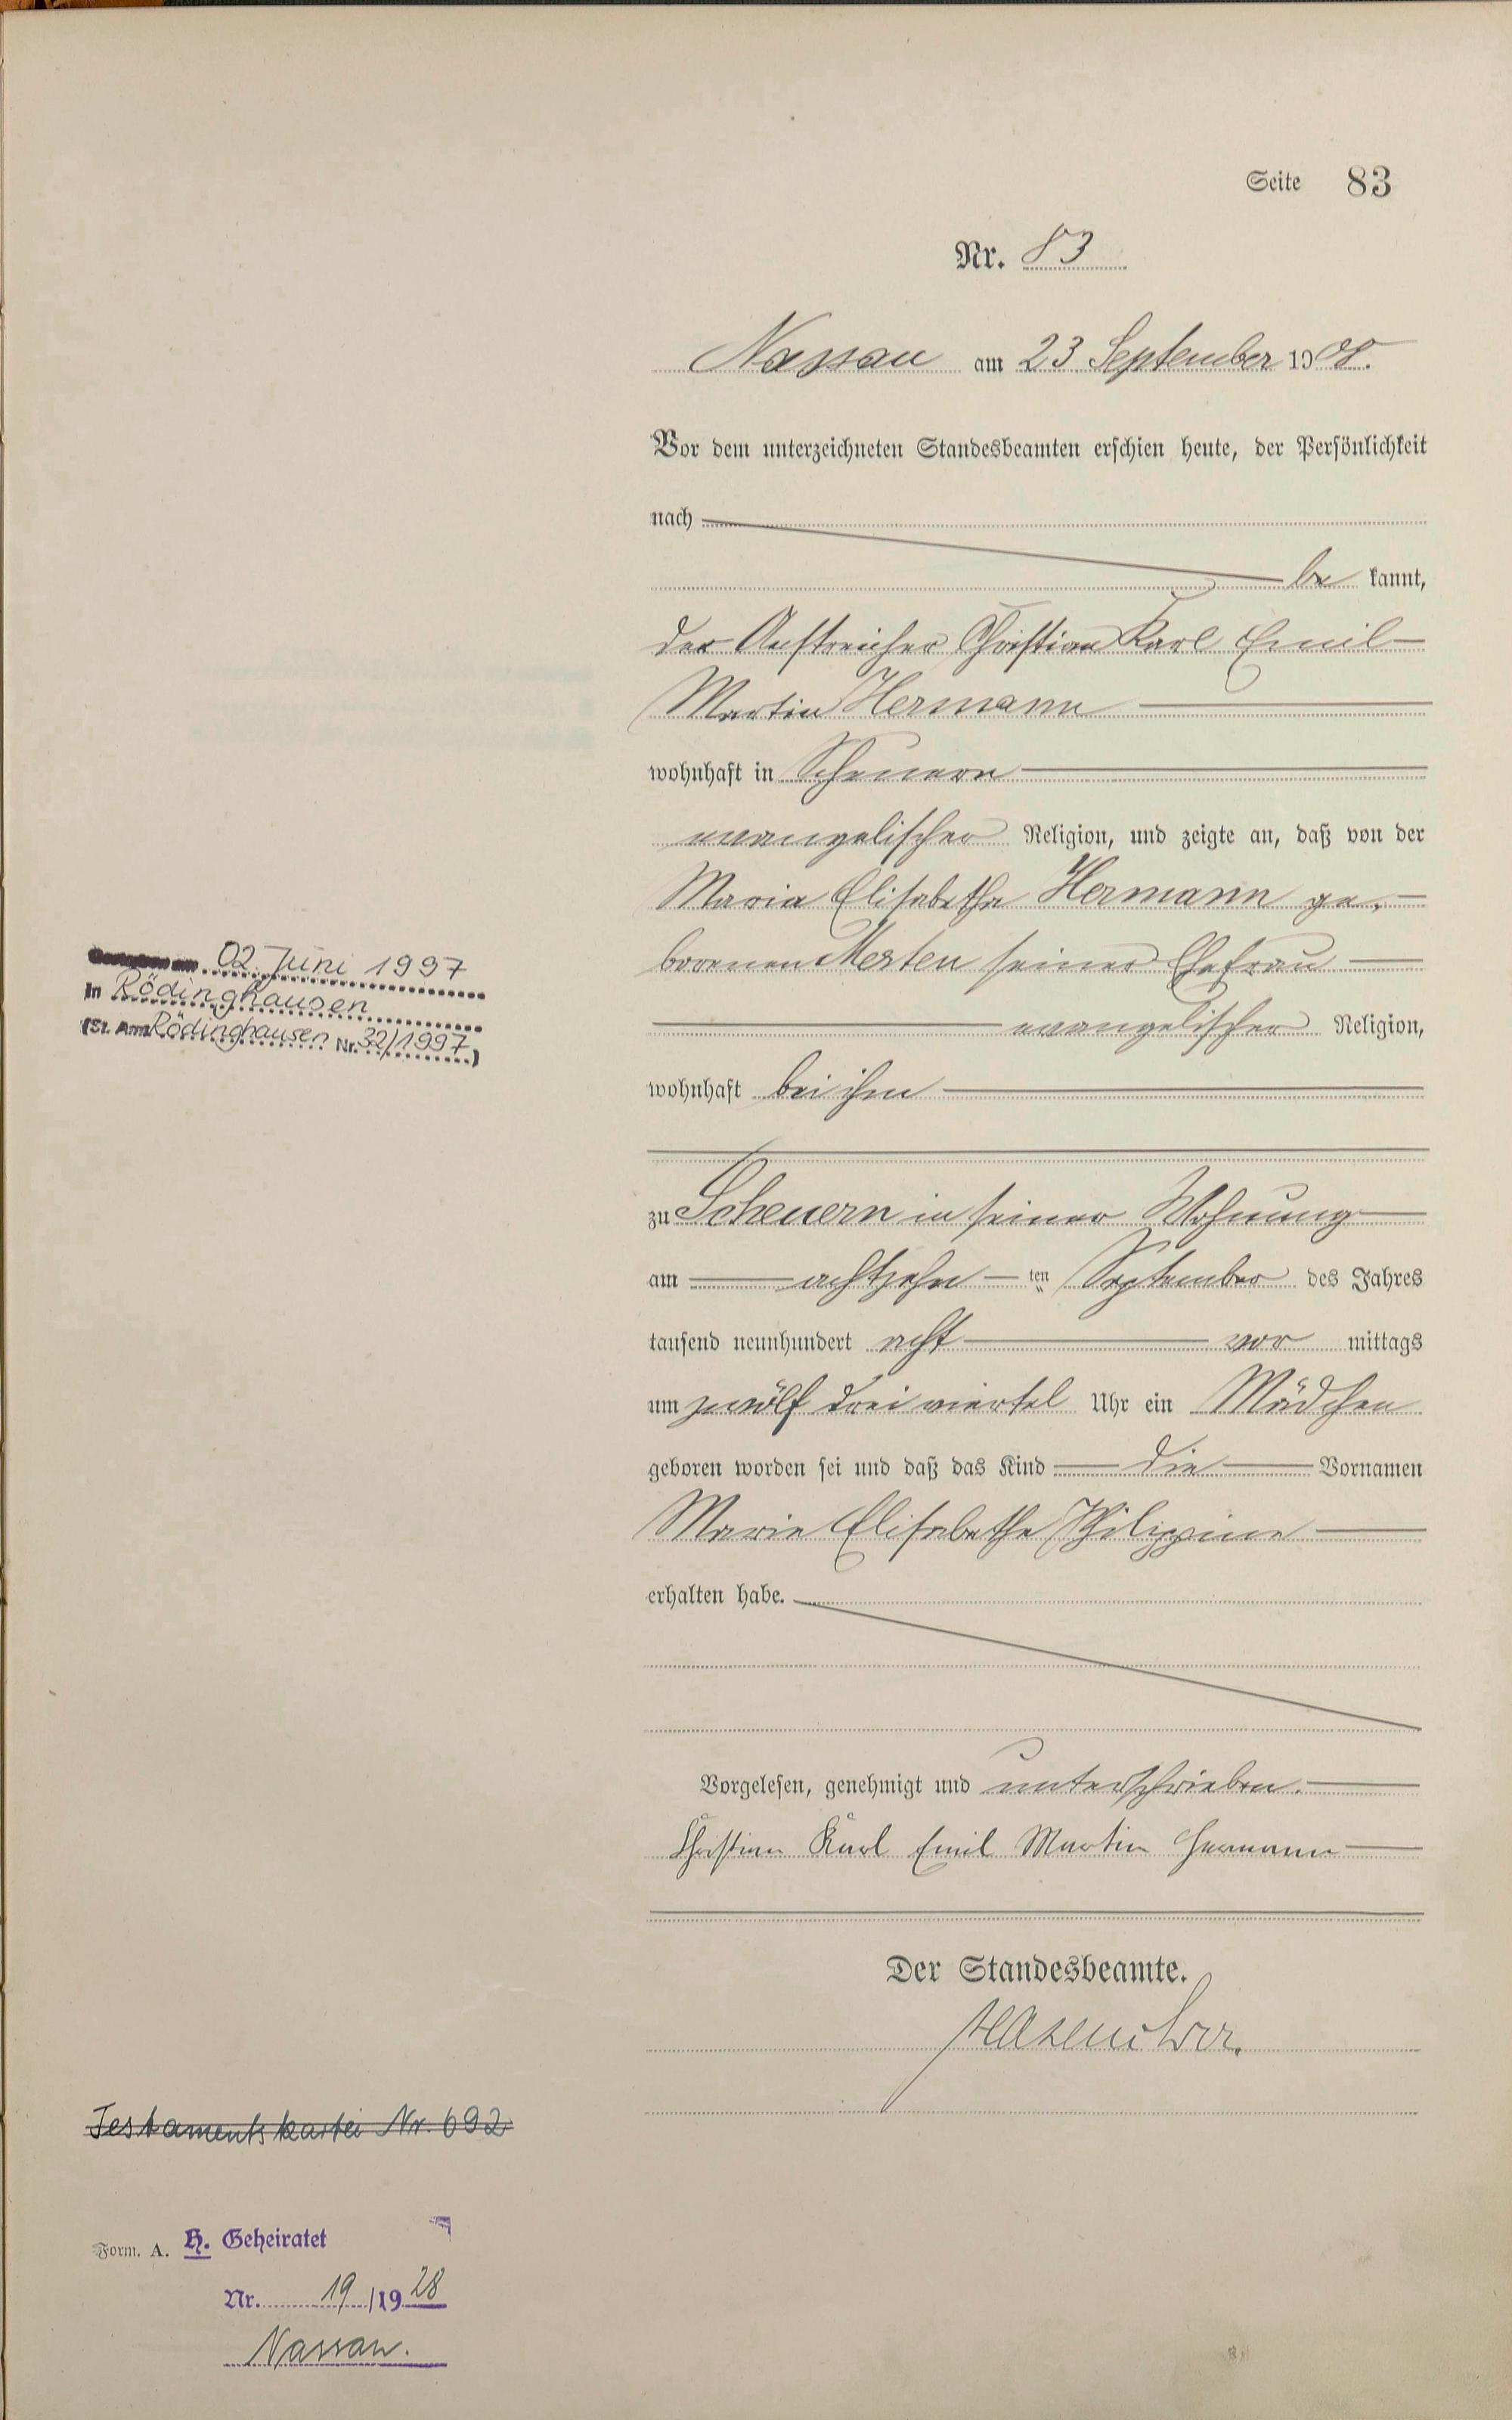 Seite 83
Nr. 83
Nassau am 23 September 1908.
Vor dem unterzeichneten Standesbeamten erschien heute, der Persönlichkeit
nach
be kannt,
der Anstreicher Christian Karl Emil
Martin Hermann
wohnhaft in Scheuern
evangelischer Religion, und zeigte an, daß von der
Maria Elisabetha Hermann ge-
borenen Merten seiner Ehefrau
evangelischer Religion,
wohnhaft bei ihm
zu Scheuern in seiner Wohnung
am achtzehn ten September des Jahres
tausend neunhundert acht vor mittags
um zwölf drei viertel Uhr ein Mädchen
geboren worden sei und daß das Kind die Vornamen
Marie Elisabethe Philippine
erhalten habe.
Vorgelesen, genehmigt und unterschrieben.
Christian Karl Emil Martin Hermann
Der Standesbeamte.
02. Juni 1997
in Rödinghausen
(St. Amt Rödinghausen Nr. 32/1997)
Testamentskartei Nr. 692
Form. A. H. Geheiratet
Nr. 19/1928
Nassau.